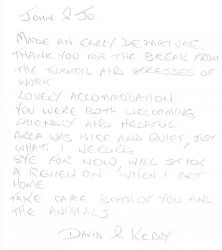 JOHN & JO.
MADE AN EARLY DEPARTURE.
THANK YOU FOR THE BREAK FROM
THE TURMOIL AND STRESSES OF
WORK
LOVELY ACCOMMODATION
YOU WERE BOTH WELCOMING,
FRIENDLY AND HELPFUL
AREA WAS NICE AND QUIET, JUST
WHAT I NEEDED.
BYE FOR NOW, WILL STICK
A REVIEW ON WHEN I GET
HOME
TAKE CARE BOTH OF YOU AND
THE ANIMALS
DAVID & KERRY